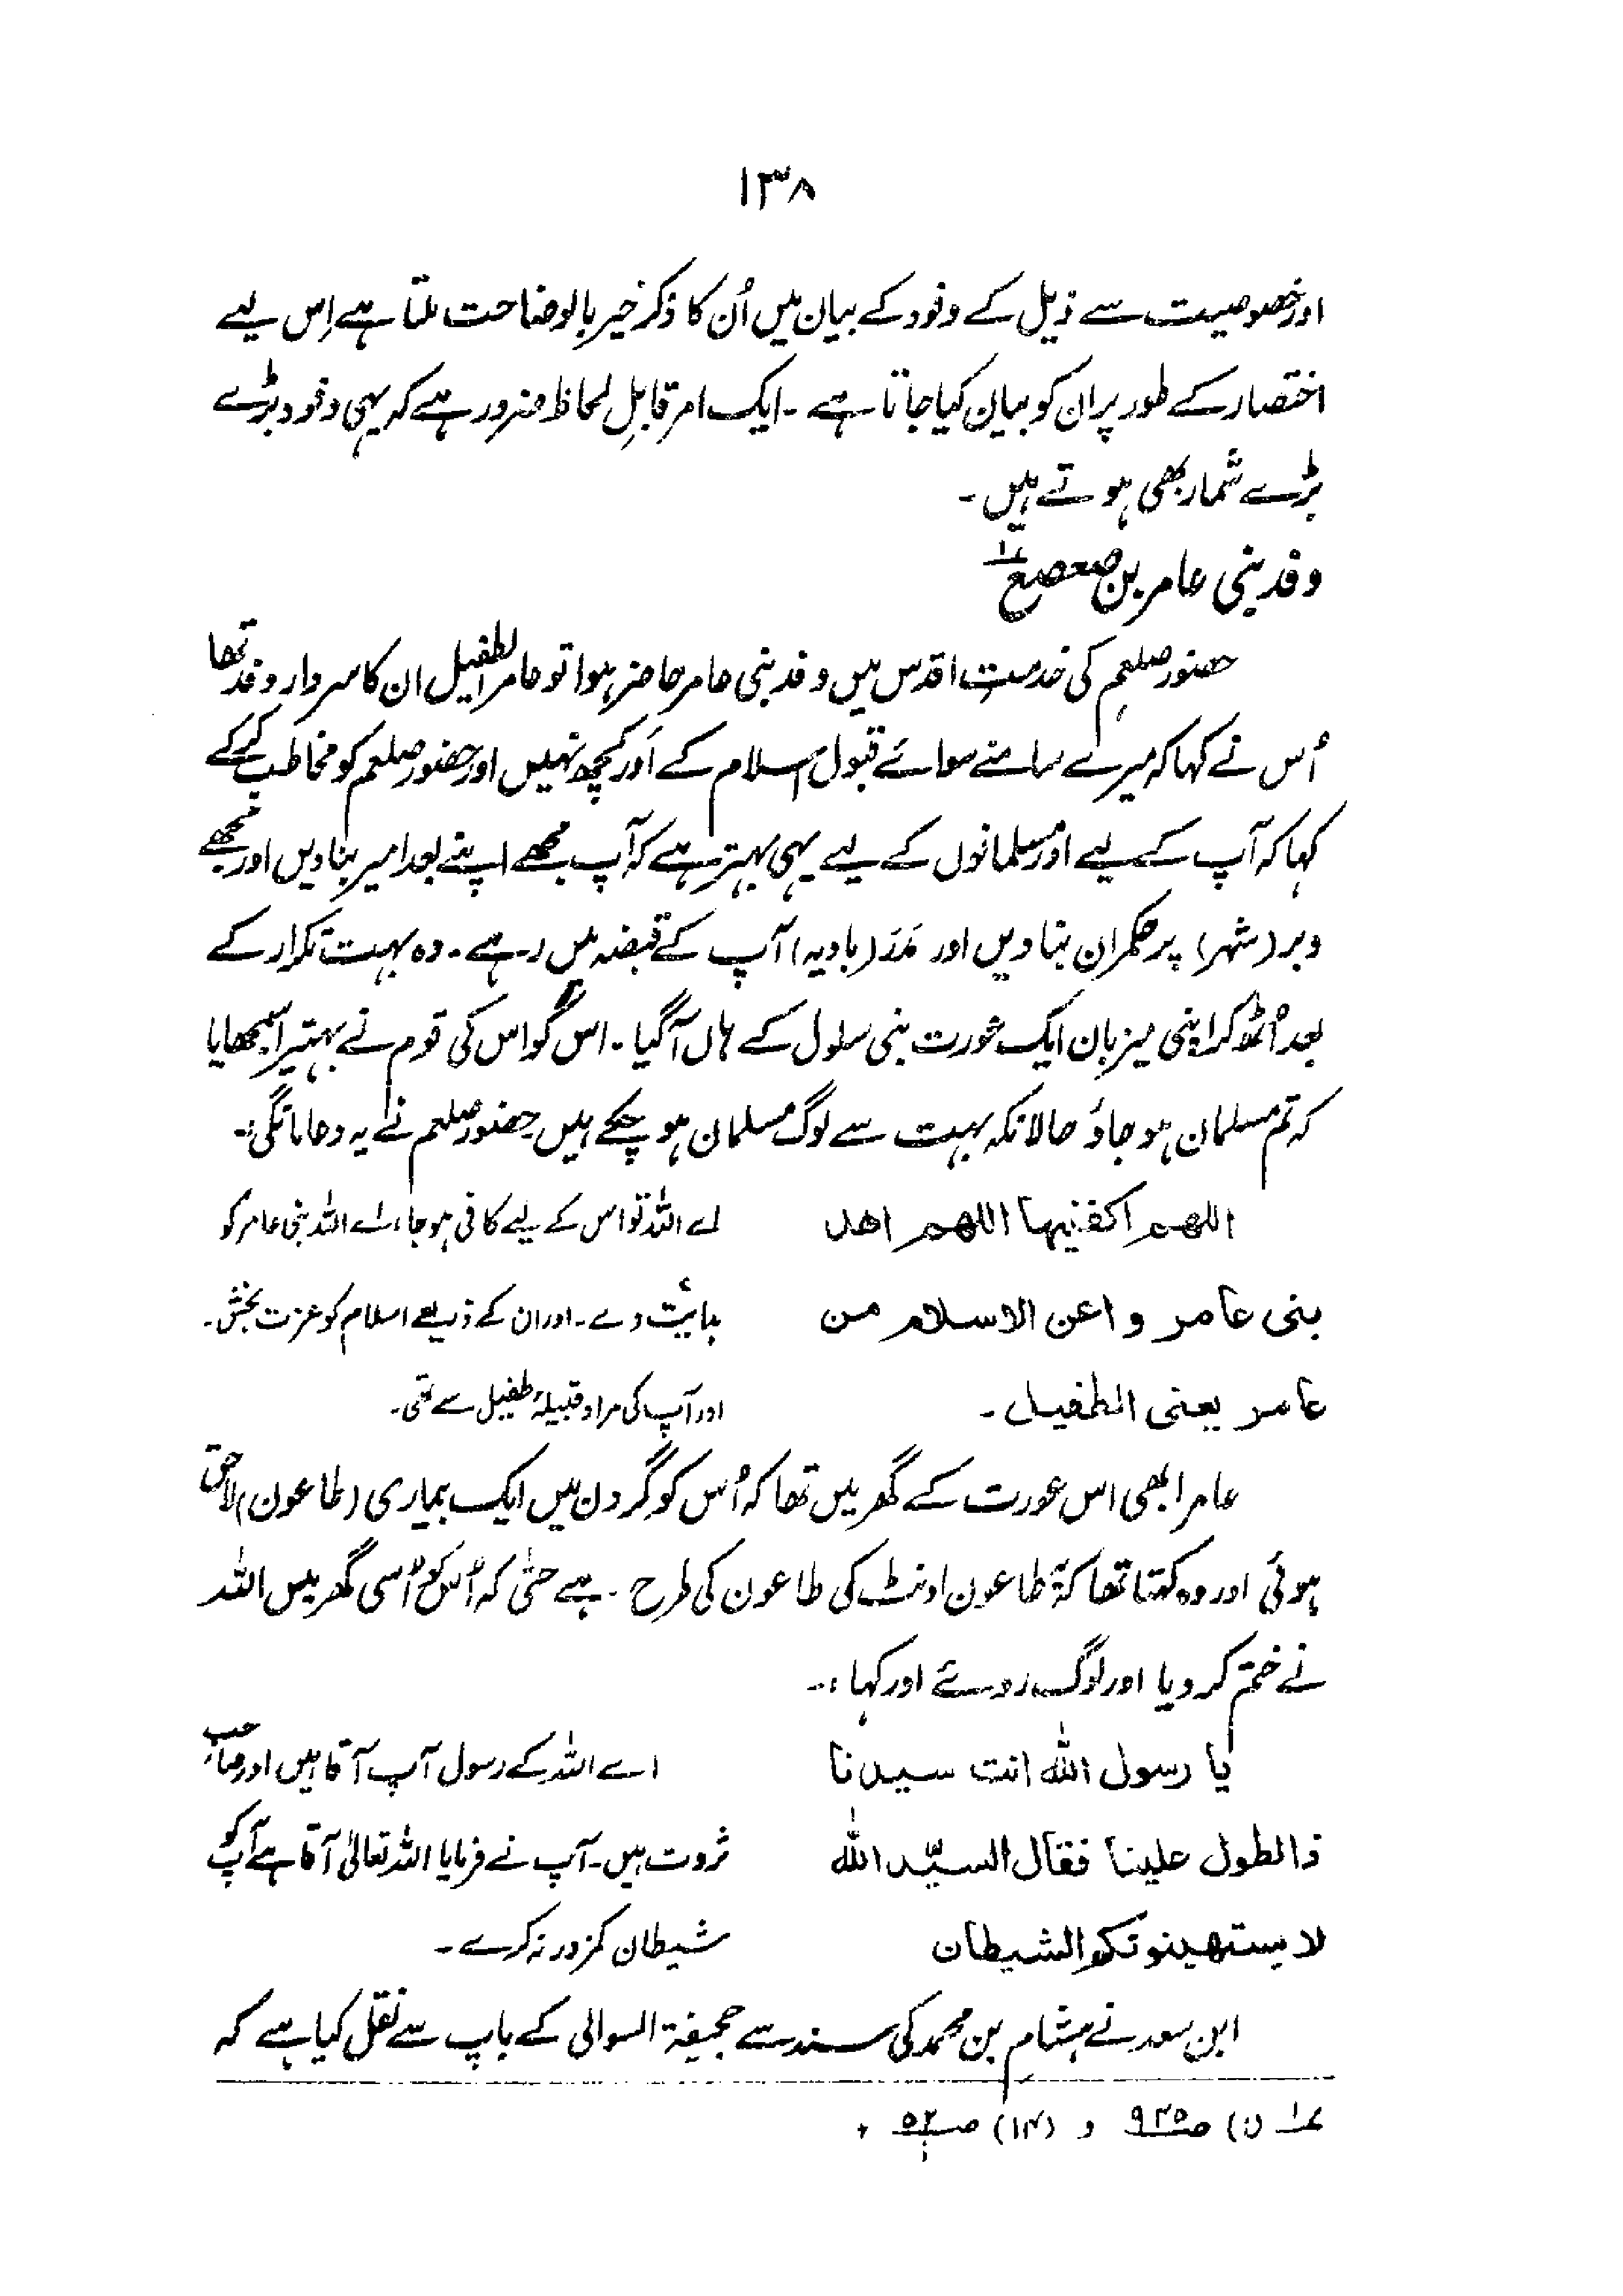 ۱۳۸
اور خصوصیت سے ذیل کے وفود کے بیان میں اُن کا ذکر خیر بالوضاحت ملتا ہے اِس لیے
اختصار کے طور پر ان کو بیان کیا جاتا ہے ۔ ایک امر قابلِ لحاظ ضرور ہے کہ یہی وفود بڑے
بڑے شمار بھی ہوتے ہیں ۔
وفد بنی عامر بن صعصعۃ ؎۱
حضور صلعم کی خدمت اقدس میں وفد بنی عامر حاضر ہوا تو عامر الطفیل ان کا سردار وفد تھا
اُس نے کہا کہ میرے سامنے سوائے قبول اسلام کے اَور کچھ نہیں اور حضور صلعم کو مخاطب کر کے
کہا کہ آپ کے لیے اور مسلمانوں کے لیے یہی بہتر ہے کہ آپ مجھے اپنے بعد امیر بنا دیں اور مجھے
وبر (شہر) پر حکمران بنا دیں اور مَدَر (بادیہ) آپ کے قبضہ میں رہے ۔ وہ بہت تکرار کے
بعد اُٹھ کر اپنی میزبان ایک عورت بنی سلول کے ہاں آ گیا ۔ اس کو اس کی قوم نے بہتیرا سمجھایا
کہ تم مسلمان ہو جاؤ حالانکہ بہت سے لوگ مسلمان ہو چکے ہیں حضور صلعم نے یہ دعا مانگی :۔
اللهم اكفنيها اللهم اهد    اے اللہ تو اس کے لیے کافی ہو جا ، اے اللہ بنی عامر کو
بنی عامر و اعن الاسلام من    ہدایت دے ۔ اور ان کے ذریعے اسلام کو عزت بخش ۔
عامر یعنی الطفیل ۔    اور آپ کی مراد قبیلۂ طفیل سے تھی ۔
عامر ابھی اس عورت کے گھر میں تھا کہ اُس کو گردن میں ایک بیماری (طاعون) لاحق
ہوئی اور وہ کہتا تھا کہ طاعون اونٹ کی طاعون کی طرح ۔ ہے حتٰی کہ اُس کو اُسی گھر میں اللہ
نے ختم کر دیا اور لوگ روئے اور کہا :۔
یا رسول اللہ انت سیدنا    اے اللہ کے رسول آپ آقا ہیں اور صاحب
ذا الطول علینا فقال السیّد اللہ    ثروت ہیں ۔ آپ نے فرمایا اللہ تعالیٰ آقا ہے آپ کو
لا یستهینونکم الشیطان    شیطان کمزور نہ کرے ۔
ابن سعد نے ہشام بن محمد کی سند سے جحیفۃ السوالی کے باپ سے نقل کیا ہے کہ
؎۱ (ن) ص۹۳۵ و (۱۳) ص۵۲